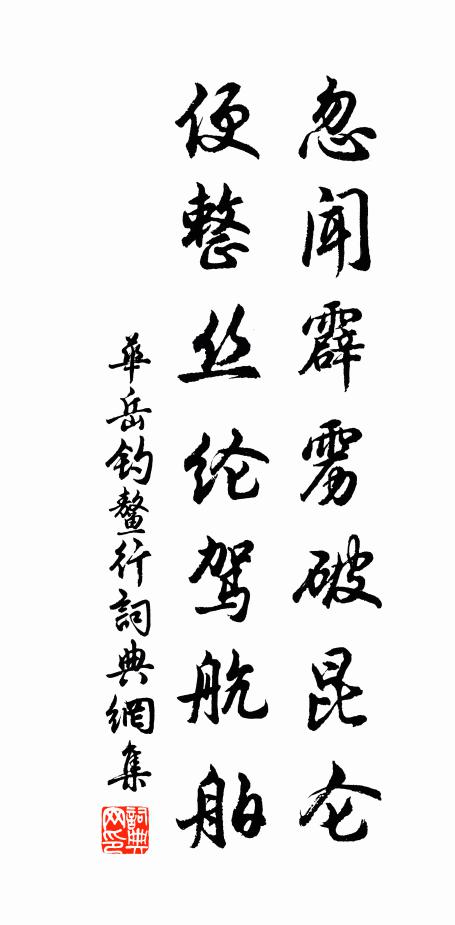 忽闻霹雳破昆仑
便整丝纶驾航舶
華岳钓鳌行詞典網集
詞典网印